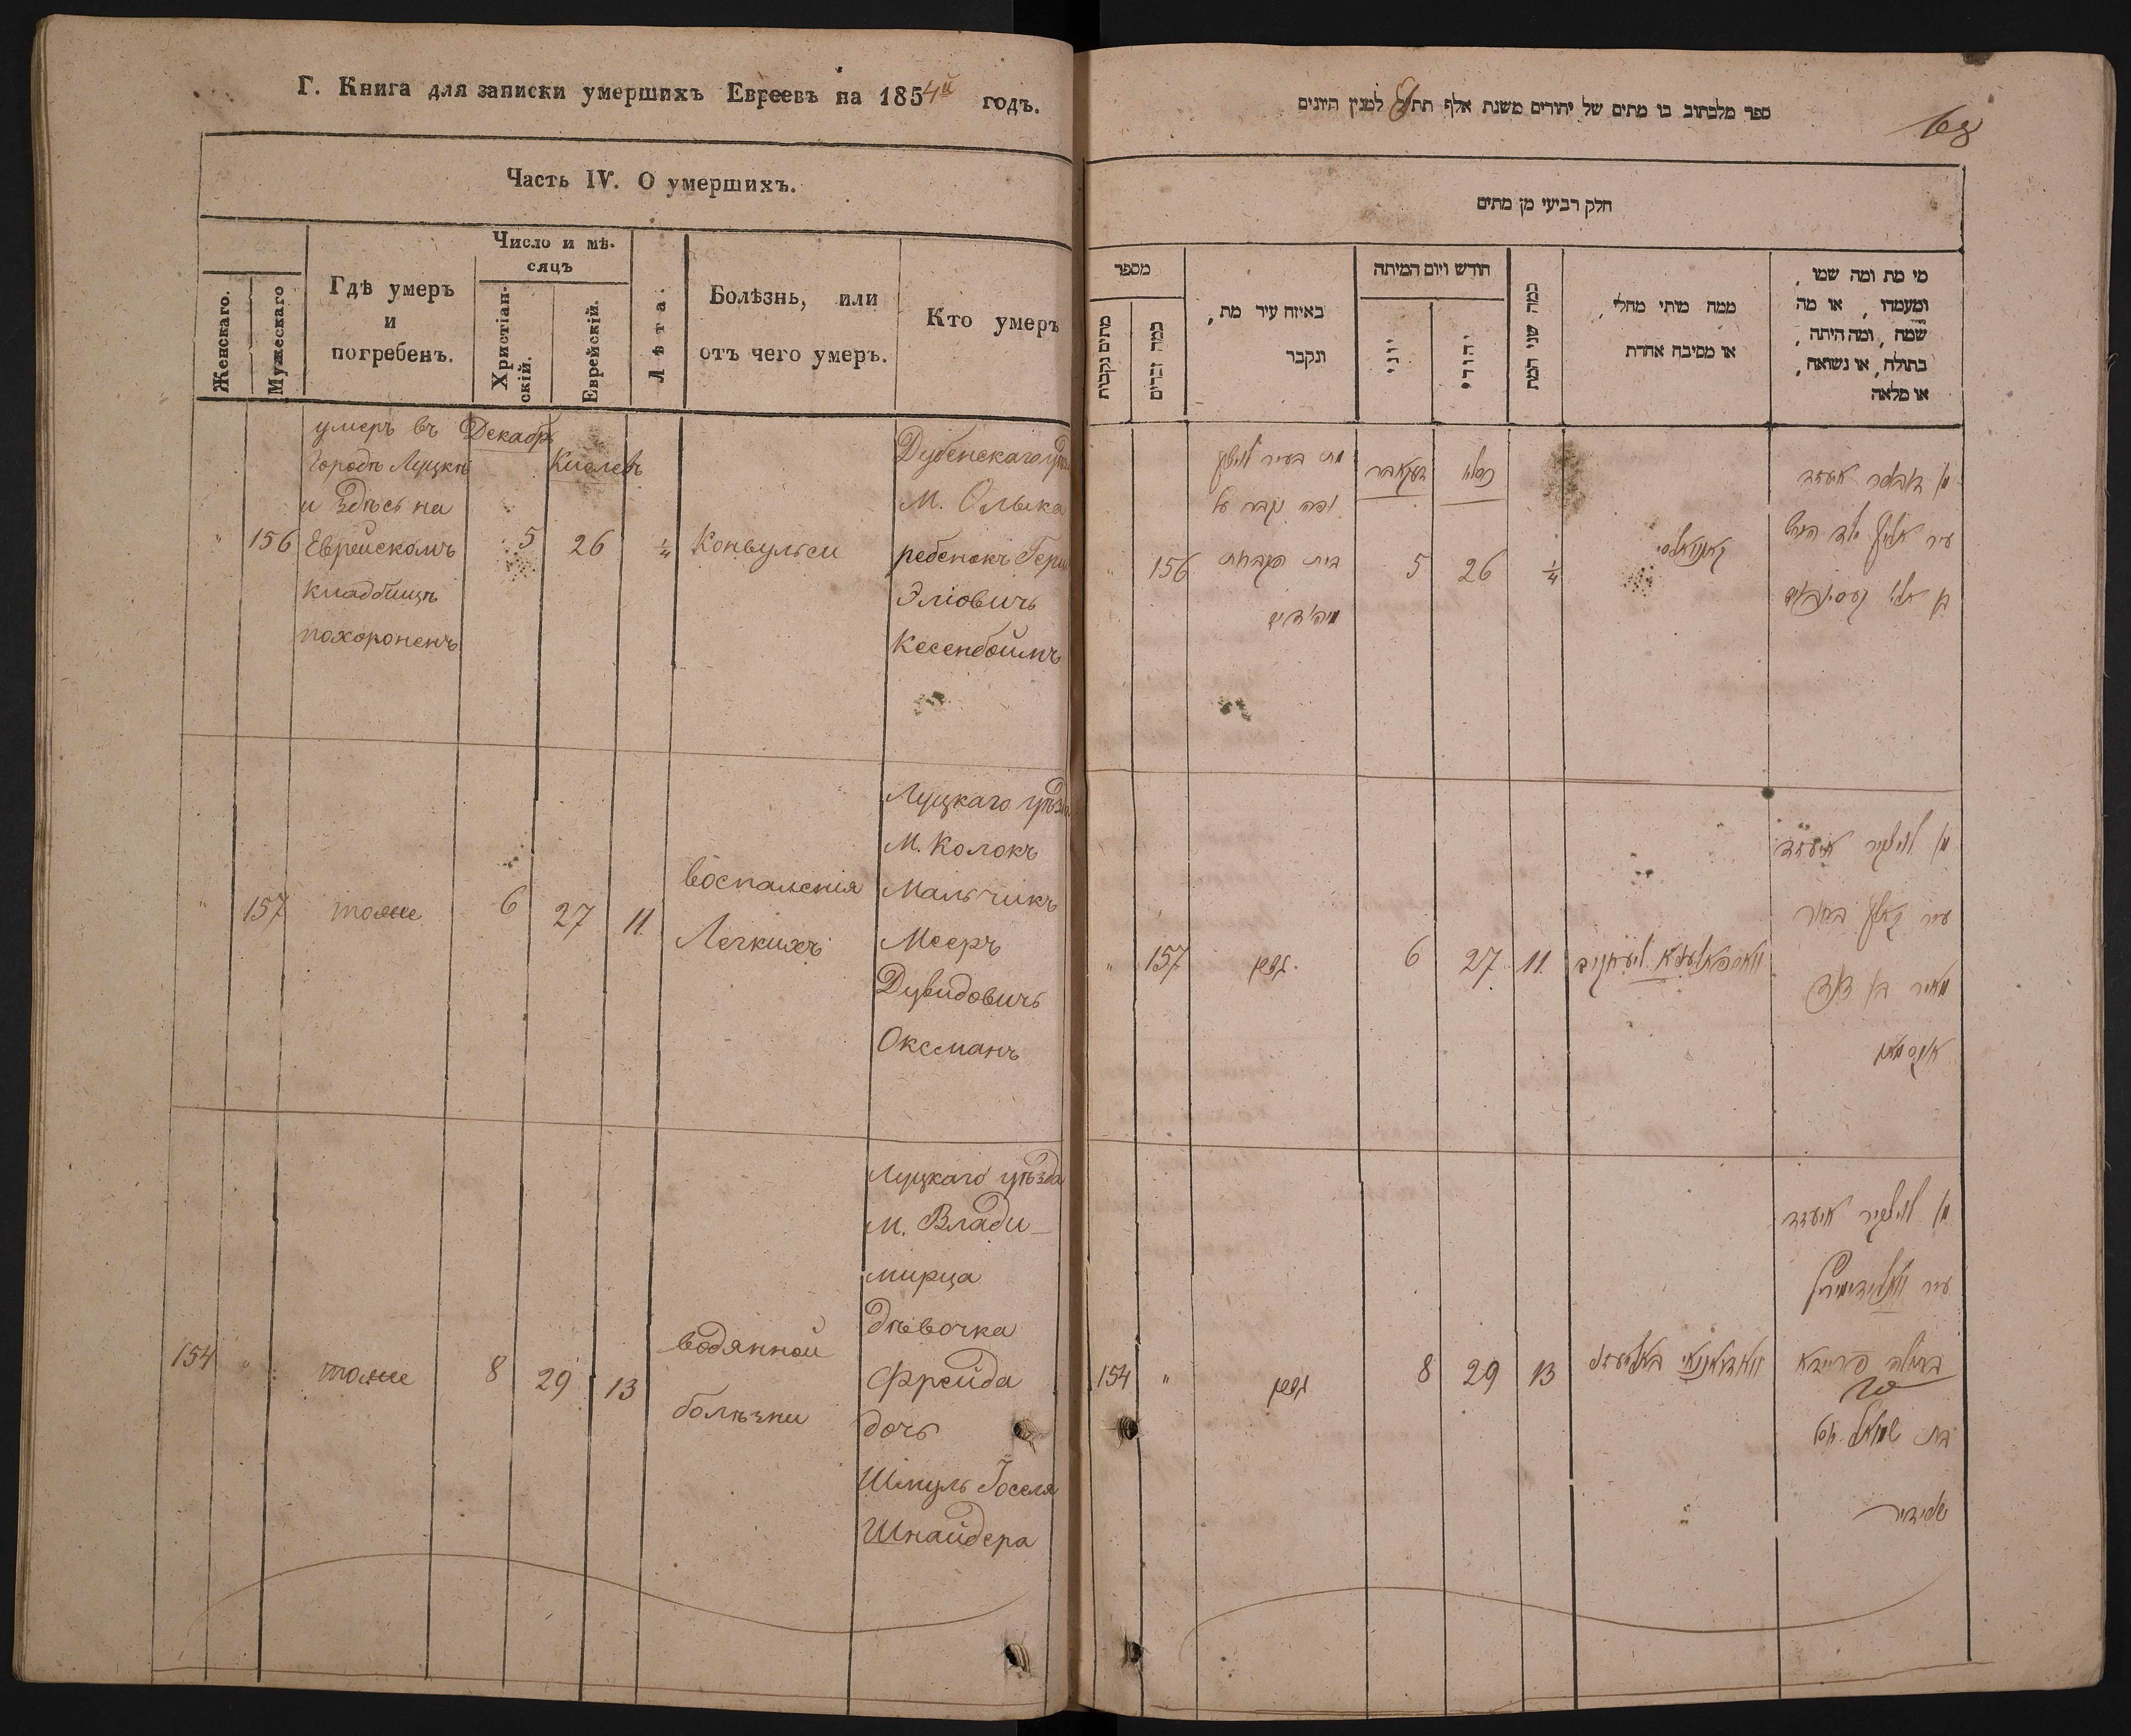 Г. Книга для записки умершихъ Евреевъ на 1854й годъ.
Часть IV. О умершихъ.
Женскаго.
Мужескаго
Гдѣ умеръ
и
погребенъ.
Число и мѣ-
сяцъ
Христіан-
скій.
Еврейскій.
Лѣта:
Болѣзнь, или
отъ чего умеръ.
Кто умеръ
умеръ въ
городѣ Луцкѣ
и Здѣсь на
Еврейскомъ
кладбищѣ
похороненъ
Декабр
Кислевъ
" 156
5
26
1/4
Конвульси
Дубенскаго уѣзда
М. Олыка
ребенокъ Герш
Эліовичъ
Кесенбоимъ
" 157
тоже
6
27
11
воспаленія
Легкихъ
Луцкаго уѣзда
М. Колокъ
Мальчикъ
Мееръ
Дувидовичъ
Оксманъ
154 "
тоже
8
29
13
водянной
болѣзни
Луцкаго уѣзда
м. Влади-
мирца
дѣвочка
Фрейда
дочь
Шмуль Іоселя
Шнайдера
ספר מלכתוב בו מתים של יהודים משנת אלף תת למנין היונים
חלק רביעי מן מתים
מספר
מתים נקבות
כמה זכרים
באיזה עיר מת,
ונקבר
חודש ויום המיתה
יוני
יהודי
כמה שני המת
ממה מותי מחלי,
או מסיבה אחרת
מי מת ומה שמו,
ומעמדו, או מה
שמה, ומה היתה,
בתולה, או נשואה,
או מלאה
156
מת בעיר
ופה נקבר על
בית הקברות
דעקאבר
כסלו
5
26
1/4
קאנוואלסי
עיר אליק ילד הירש
בן אלי
" 157
6
27
11
עיר קאלק בחור
מאיר בן דוד
אקסמאן
154 "
8
29
13
בתולה פריידא
בת שמואל יוסל
שניידער